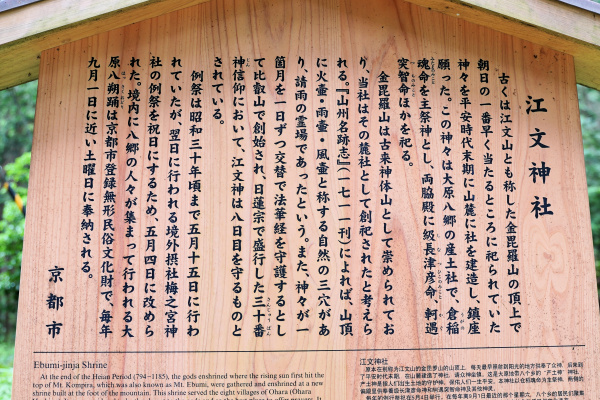 江文神社
古くは江文山とも称した金毘羅山の頂上で
朝日の一番早く当たるところに祀られていた
神々を平安時代末期に山麓に社を建造し、鎮座
願った。この神々は大原八郷の産土神で、倉稲
魂命を主祭神とし、両脇殿に級長津彦命、軻遇
突智命ほかを祀る。
金毘羅山は古来神体山として崇められてお
り、当社はその麓社として創祀されたと考えら
れる。『山州名跡志』(一七一一刊)によれば、山頂
に火壷・雨壷・風壷と称する自然の三穴があ
り、請雨の霊場であったという。また、神々が一
箇月を一日ずつ交替で法華経を守護するとし
て比叡山で創始され、日蓮宗で盛行した三十番
神信仰において、江文神は八日目を守るものと
されている。
例祭は昭和三十年頃まで五月十五日に行わ
れていたが、翌日に行われる境外摂社梅之宮神
社の例祭を祝日にするため、五月四日に改めら
れた。境内に八郷の人々が集まって行われる大
原八朔踊は京都市登録無形民俗文化財で、毎年
九月一日に近い土曜日に奉納される。
京都市
Ebumi-jinja Shrine
At the end of the Heian Period (794~1185), the gods enshrined where the rising sun first hit the
top of Mt. Kompira, which was also known as Mt. Ebumi, were gathered and enshrined at a new
shrine built at the foot of the mountain. This shrine served the eight villages of Ohara (Ohara
江文神社